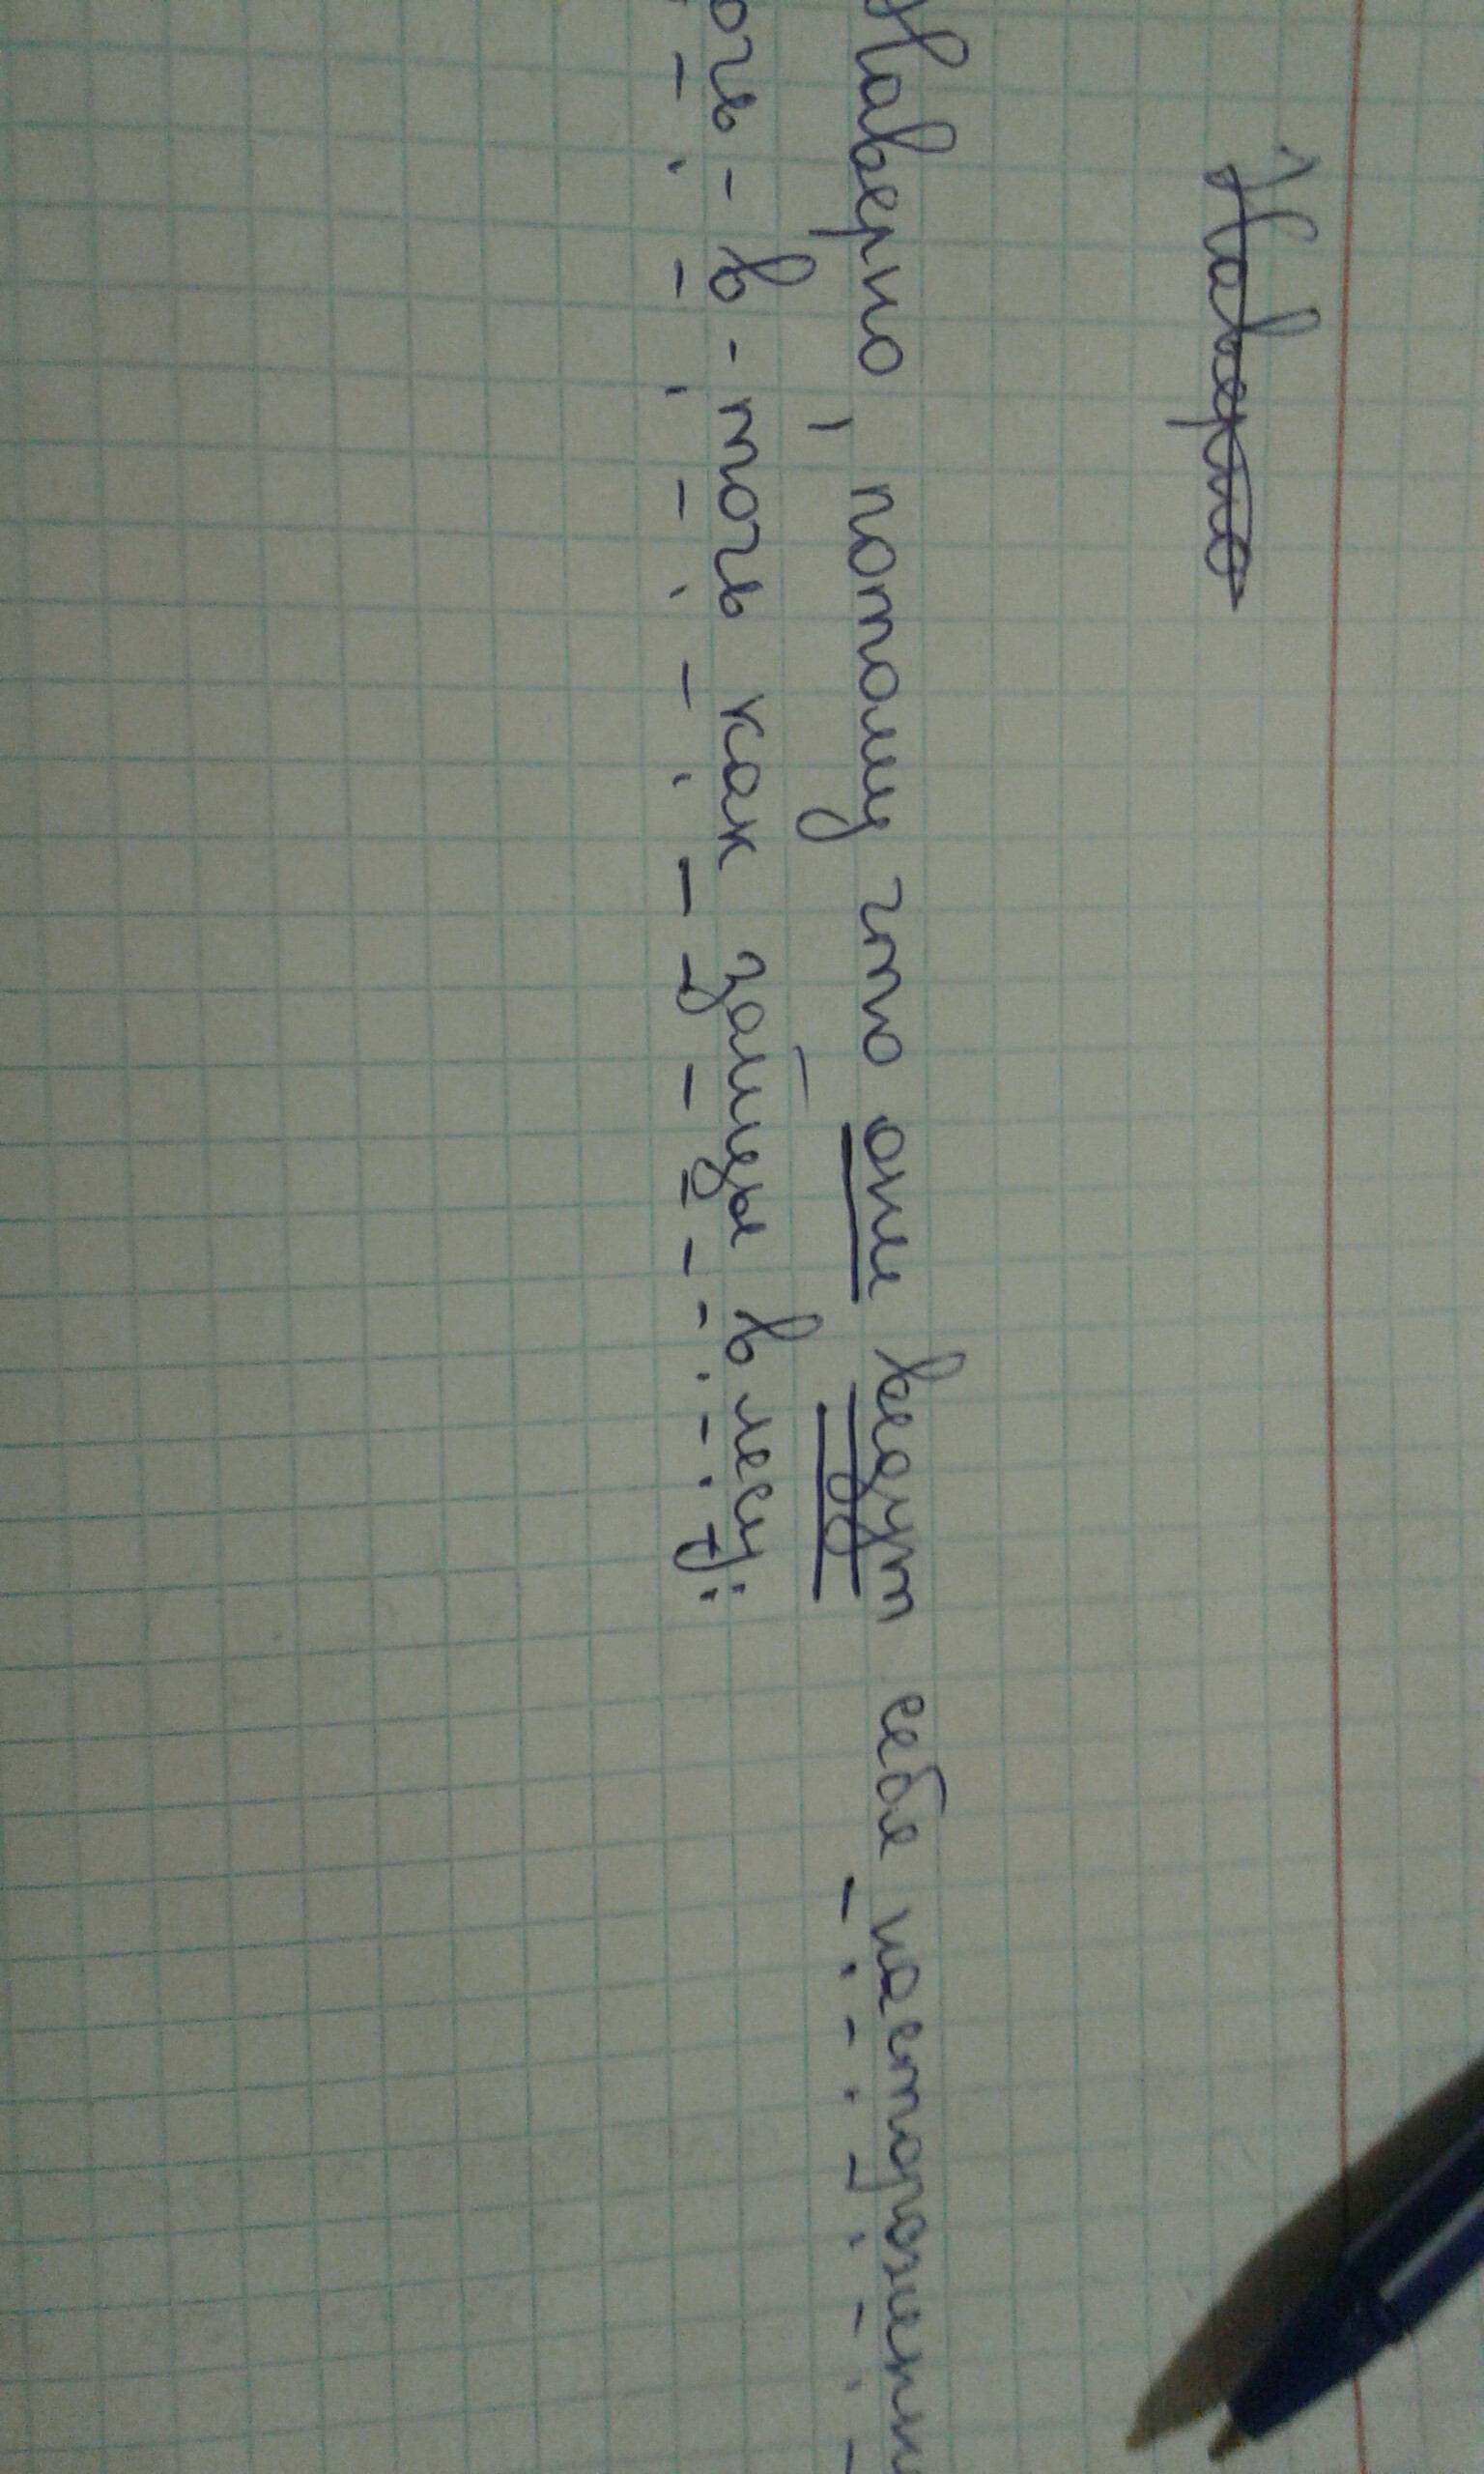 Наверно
Наверно, потому что они ведут себя настороженн
очь-в-точь как зайцы в лесу.